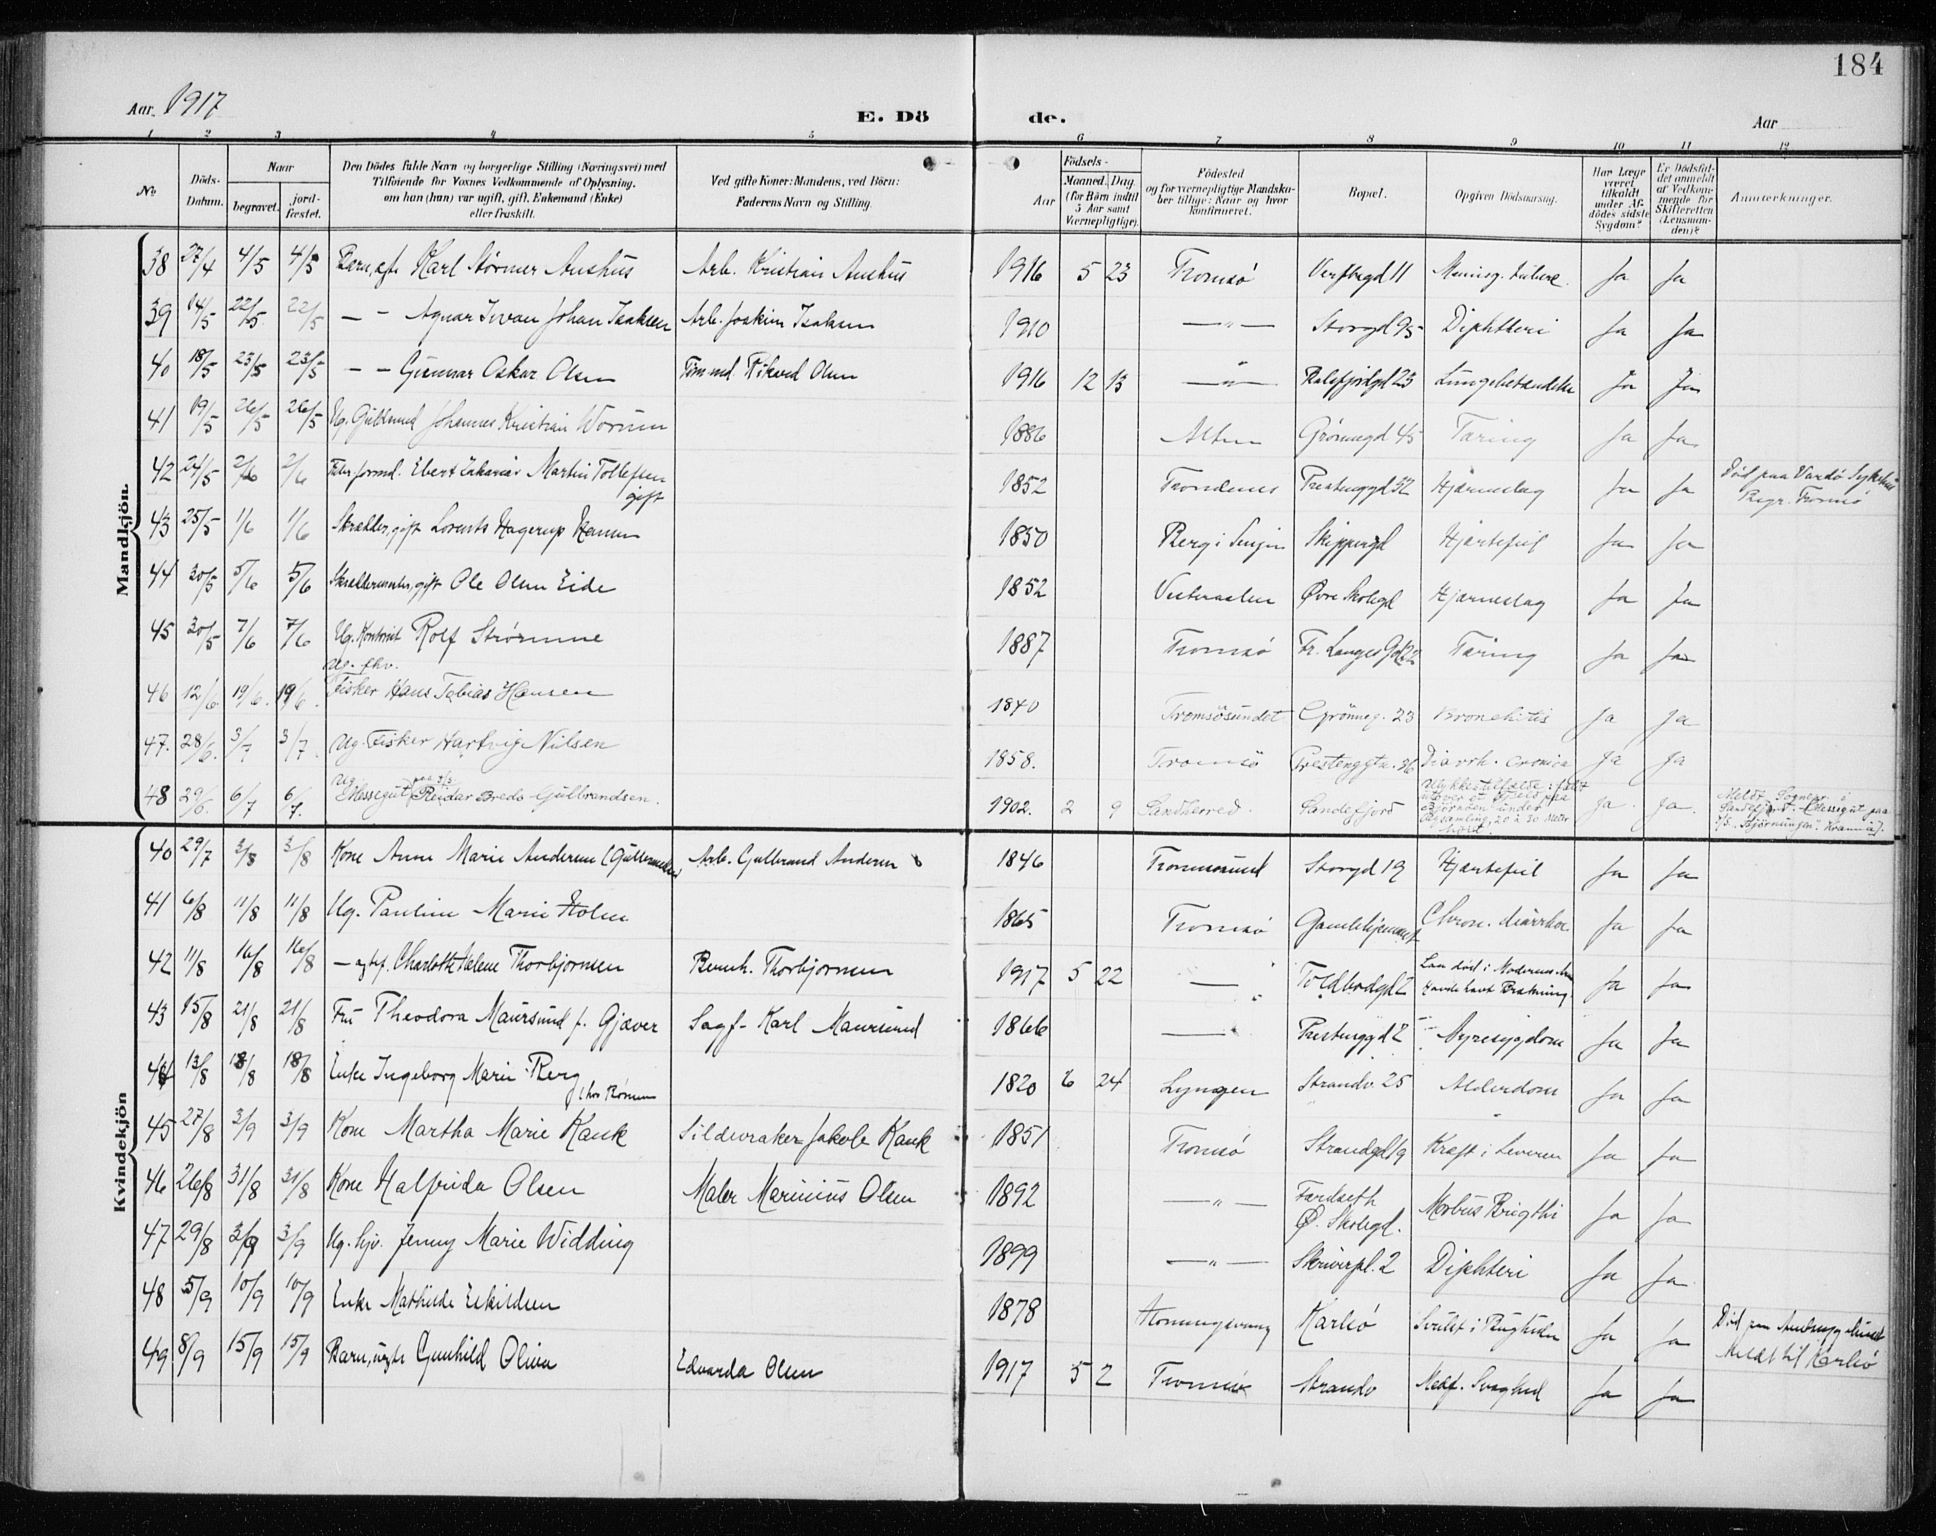 184
Aar 1917
E. Dö de.
Aar
1 2 3 4 5 6 7 8 9 10 11 12
No
Döds-Datum.
Naar
begravet.
jord-fæstet.
Den Dödes fulde Navn og borgerlige Stilling (Næringsvei) med
Tilföiende for Voxnes Vedkommende af Oplysning,
om han (hun) var ugift, gift, Enkemand (Enke)
eller fraskilt.
Ved gifte Koner: Mandens, ved Börn:
Faderens Navn og Stilling.
Födsels-
Aar
Maaned. Dag
(for Börn indtil
5 Aar samt
Værnepligtige).
Födested
og for værnepligtige Mandska-
ber tillige: Naar og hvor
konfirmeret.
Bopæl.
Opgiven Dödsaarsag.
Har Læge
været
tilkaldt
under Af-
dödes sidste
Sygdom?
Er Dödsfal-
det anmeldt
af Vedkom-
mende for
Skifteretten
(Lensman-
den)?
Anmerkninger.
Mandkjön.
38 27/4 4/5 4/5 Barn, Karl Størmer Aushus Arb. Kristian Aushus 1916 5 23 Tromsø Verftsgd 11 Ja Ja
39 14/5 22/5 22/5 — - Agnar Ivan Johan Isaksen Arb. Joakim Isaksen 1910 — " — Storgd 95 Diphteri Ja Ja
40 18/5 23/5 23/5 — - Gunnar Oskar Olsen Tømmd. Rikard Olsen 1916 12 13 — " — Balsfjordgd 23 Lungebetændelse Ja Ja
41 19/5 26/5 26/5 Ug. Guldsmed Johannes Kristian Worum 1886 Alten Grønnegd 45 Tæring Ja Ja
42 24/5 2/6 2/6 formd. Ebert Zakarias Martin Tollefsen gift 1852 Trondenes Prestenggd 32 Hjærneslag Ja Ja Død paa Vardø Sykehus Begr. Tromsø
43 25/5 1/6 1/6 Skrædder, gift Lorents Hagerup Hansen 1850 Berg i Senjen Skippergd Hjærtefeil Ja Ja
44 30/5 5/6 5/6 Skræddermester, gift Ole Olsen Eide 1852 Vesteraalen Øvre Skolegd Hjærneslag Ja Ja
45 30/5 7/6 7/6 Ug. Kontorist Rolf Strømme 1887 Tromsø Fr. Langes Gd 22 Tæring Ja Ja
46 12/6. 19/6. 19/6. Ug. fhv. Fisker Hans Tobias Hansen 1840 Tromsösundet Grönneg. 23 Bronchitis Ja Ja
47. 28/6. 3/7 3/7. Ug. Fisker Hartvig Nilsen 1858. Tromsö Prestenggtn. 36 Diarrh. cronica Ja Ja
48 29/6. 6/7 6/7. Ug. Messegut Reidar Bredo Gulbrandsen. 1902. 2 9 Sandeherred. Sandefjord Ulykkestilfælde: faldt utover et Fjeld paa Björnöen under 20 à 30 Meter höit. ja. ja. Meldt Sognepr. i Sandefjord. Messegut paa
Kvindekjön
40 29/7 3/8 3/8 Kone Anne Marie Andersen Arb. Gulbrand Andersen 1846 Tromsøsund Storgd 19 Hjærtefeil Ja Ja
41 6/8 11/8 11/8 Ug. Pauline Marie Holm 1865 Tromsø Gamlehjemmet Chron. diarrhoe Ja Ja
42 11/8 16/8 16/8 — Charlotte Helene Thorbjørnsen Bernh. Thorbjørnsen 1917 5 22 — " Toldbodgd 2 Laa død i Moderens Havde havt Brækning. Ja Ja
43 15/8 21/8 21/8 Fru Theodora Maursund f. Gjæver Sagf. Karl Maursund 1866 — " — Prestenggd 2 Nyresygdom Ja Ja
44 13/8 18/8 18/8 Enke Ingeborg Marie Berg 1820 6 24 Lyngen Strandv. 25 Alderdom Ja Ja
45 27/8 3/9 3/9 Kone Martha Marie Kauk Sildevraker Jakob Kauk 1851 Tromsø Strandgd 19 Kræft i Leveren Ja Ja
46 26/8 31/8 31/8 Kone Halfrida Olsen Maler Marinius Olsen 1892 — " — Ø. Skolegd. Morbus Brigthi Ja Ja
47 29/8 3/9 3/9 Ug. Jenny Marie Widding 1899 — " — Skriverpl. 2 Diphteri Ja Ja
48 5/9 10/9 10/9 Enke Mathilde Eskildsen 1878 Honningsvaag Karlsø Svulst i Ja Ja Død paa Meldt til Karlsø
49 8/9 15/9 15/9 Barn, uægte Gunhild Oliva Edvarda Olsen 1917 5 2 Tromsø Strandv Medf. Svaghed Ja Ja